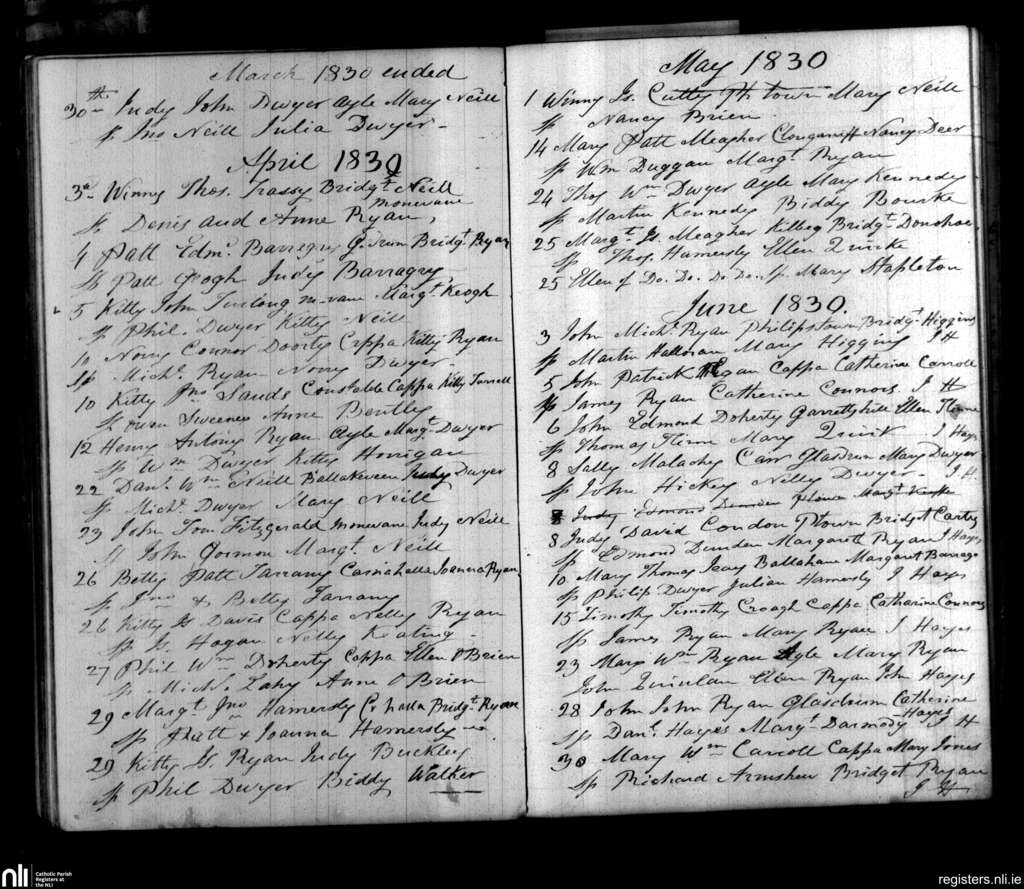 March 1830 ended
30th Judy John Dwyer Ayle Mary Neill
Sp Jno Neill Julia Dwyer
April 1830
3d Winny Thos. Bridgt Neill
monevane
Sp Denis and Anne Ryan,
4 Patt Edmd. Barragry Bridgt. Ryan
Sp Patt Judy Barragry
5 Kitty John Furlong Margt. Keogh
Sp Phil. Dwyer Kitty Neill
10 Norry Connor Doorty Cappa Kitty Ryan
Sp Michl. Ryan Norry Dwyer
10 Kitty Jno Sauds Constable Cappa Kitty
Sp Owen Sweeney Anne Bentley
12 Henry Antony Ryan Ayle Margt. Dwyer
Sp Wm Dwyer Kitty Horrigan
22 Danl. Wm Neill Judy Dwyer
Sp Michl. Dwyer Mary Neill
23 John Tom Fitzgerald monevane Judy Neill
Sp John Gorman Margt. Neill
26 Betty Patt Joanna Ryan
Sp Jno & Betty
26 Kitty Js Davis Cappa Nelly Ryan
Sp Js. Hogan Nelly Keating
27 Phil Wm Doherty Cappa Ellen O Brien
Sp Michl. Lahy Anne O Brien
29 Margt Jno Hamersly Bridgt. Ryan
Sp Patt & Joanna Hamersly
29 Kitty Js. Ryan Judy Buckley
Sp Phil Dwyer Biddy Walker
May 1830
1 Winny Js. Mary Neill
Sp Nancy Brien
14 Mary Patt Meagher Nancy Deer
Sp Wm Duggan Margt. Ryan
24 Thos Wm Dwyer Ayle Mary Kennedy
Sp Martin Kennedy Biddy Bourke
25 Margt Js. Meagher Kilbeg Bridgt. Donohoe
Sp Thos. Hamersly Ellen Quirke
25 Ellen of Do. Do. Do Do. Sp Mary Stapleton
June 1830.
3 John Michl. Ryan Philipstown Bridgt. Higgins
Sp Martin Halloran Mary Higgins J H
5 John Patrick Cappa Catherine Carroll
Sp James Ryan Catherine Connors J H
6 John Edmond Doherty Garrettyhill Ellen
Sp Thomas Mary Quirk J Hays
8 Sally Malachy Carr Glasdrum Mary Dwyer
Sp John Hickey Nelly Dwyer J H
8 Judy Edmond
8 Judy David Condon Ptown Bridget Carty
Sp Edmond Dundon Margarett Ryan J Hays
10 Mary Thomas Margaret
Sp Philip Dwyer Julian Hamersly J Hays
15 Timothy Timothy Croagh Cappa Catharine Connors
Sp James Ryan Mary Ryan J Hayes
23 Mary Wm Ryan Ayle Mary Ryan
John Ellen Ryan John Hayes
28 John John Ryan Glasdrum Catherine
Hayes
Sp Danl. Hayes Mary Darmody J H
30 Mary Wm Carroll Cappa Mary Jones
Sp Richard Armshaw Bridget Ryan
J H
nli Catholic Parish
Registers at
the NLI
registers.nli.ie